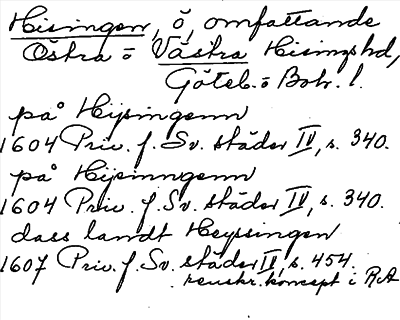 Hisingen, ö, omfattande
Östra o Västra Hisings hd,
Göteb. o Boh. l.
på Hijsingenn
1604 Priv. f. Sv. städer IV, s. 340.
på Hijsinngenn
1604 Priv. f. Sv. städer IV, s. 340.
dass landt Heyssingen
1607 Priv. f. Sv. städer IV, s. 454.
renskr. koncept i RA